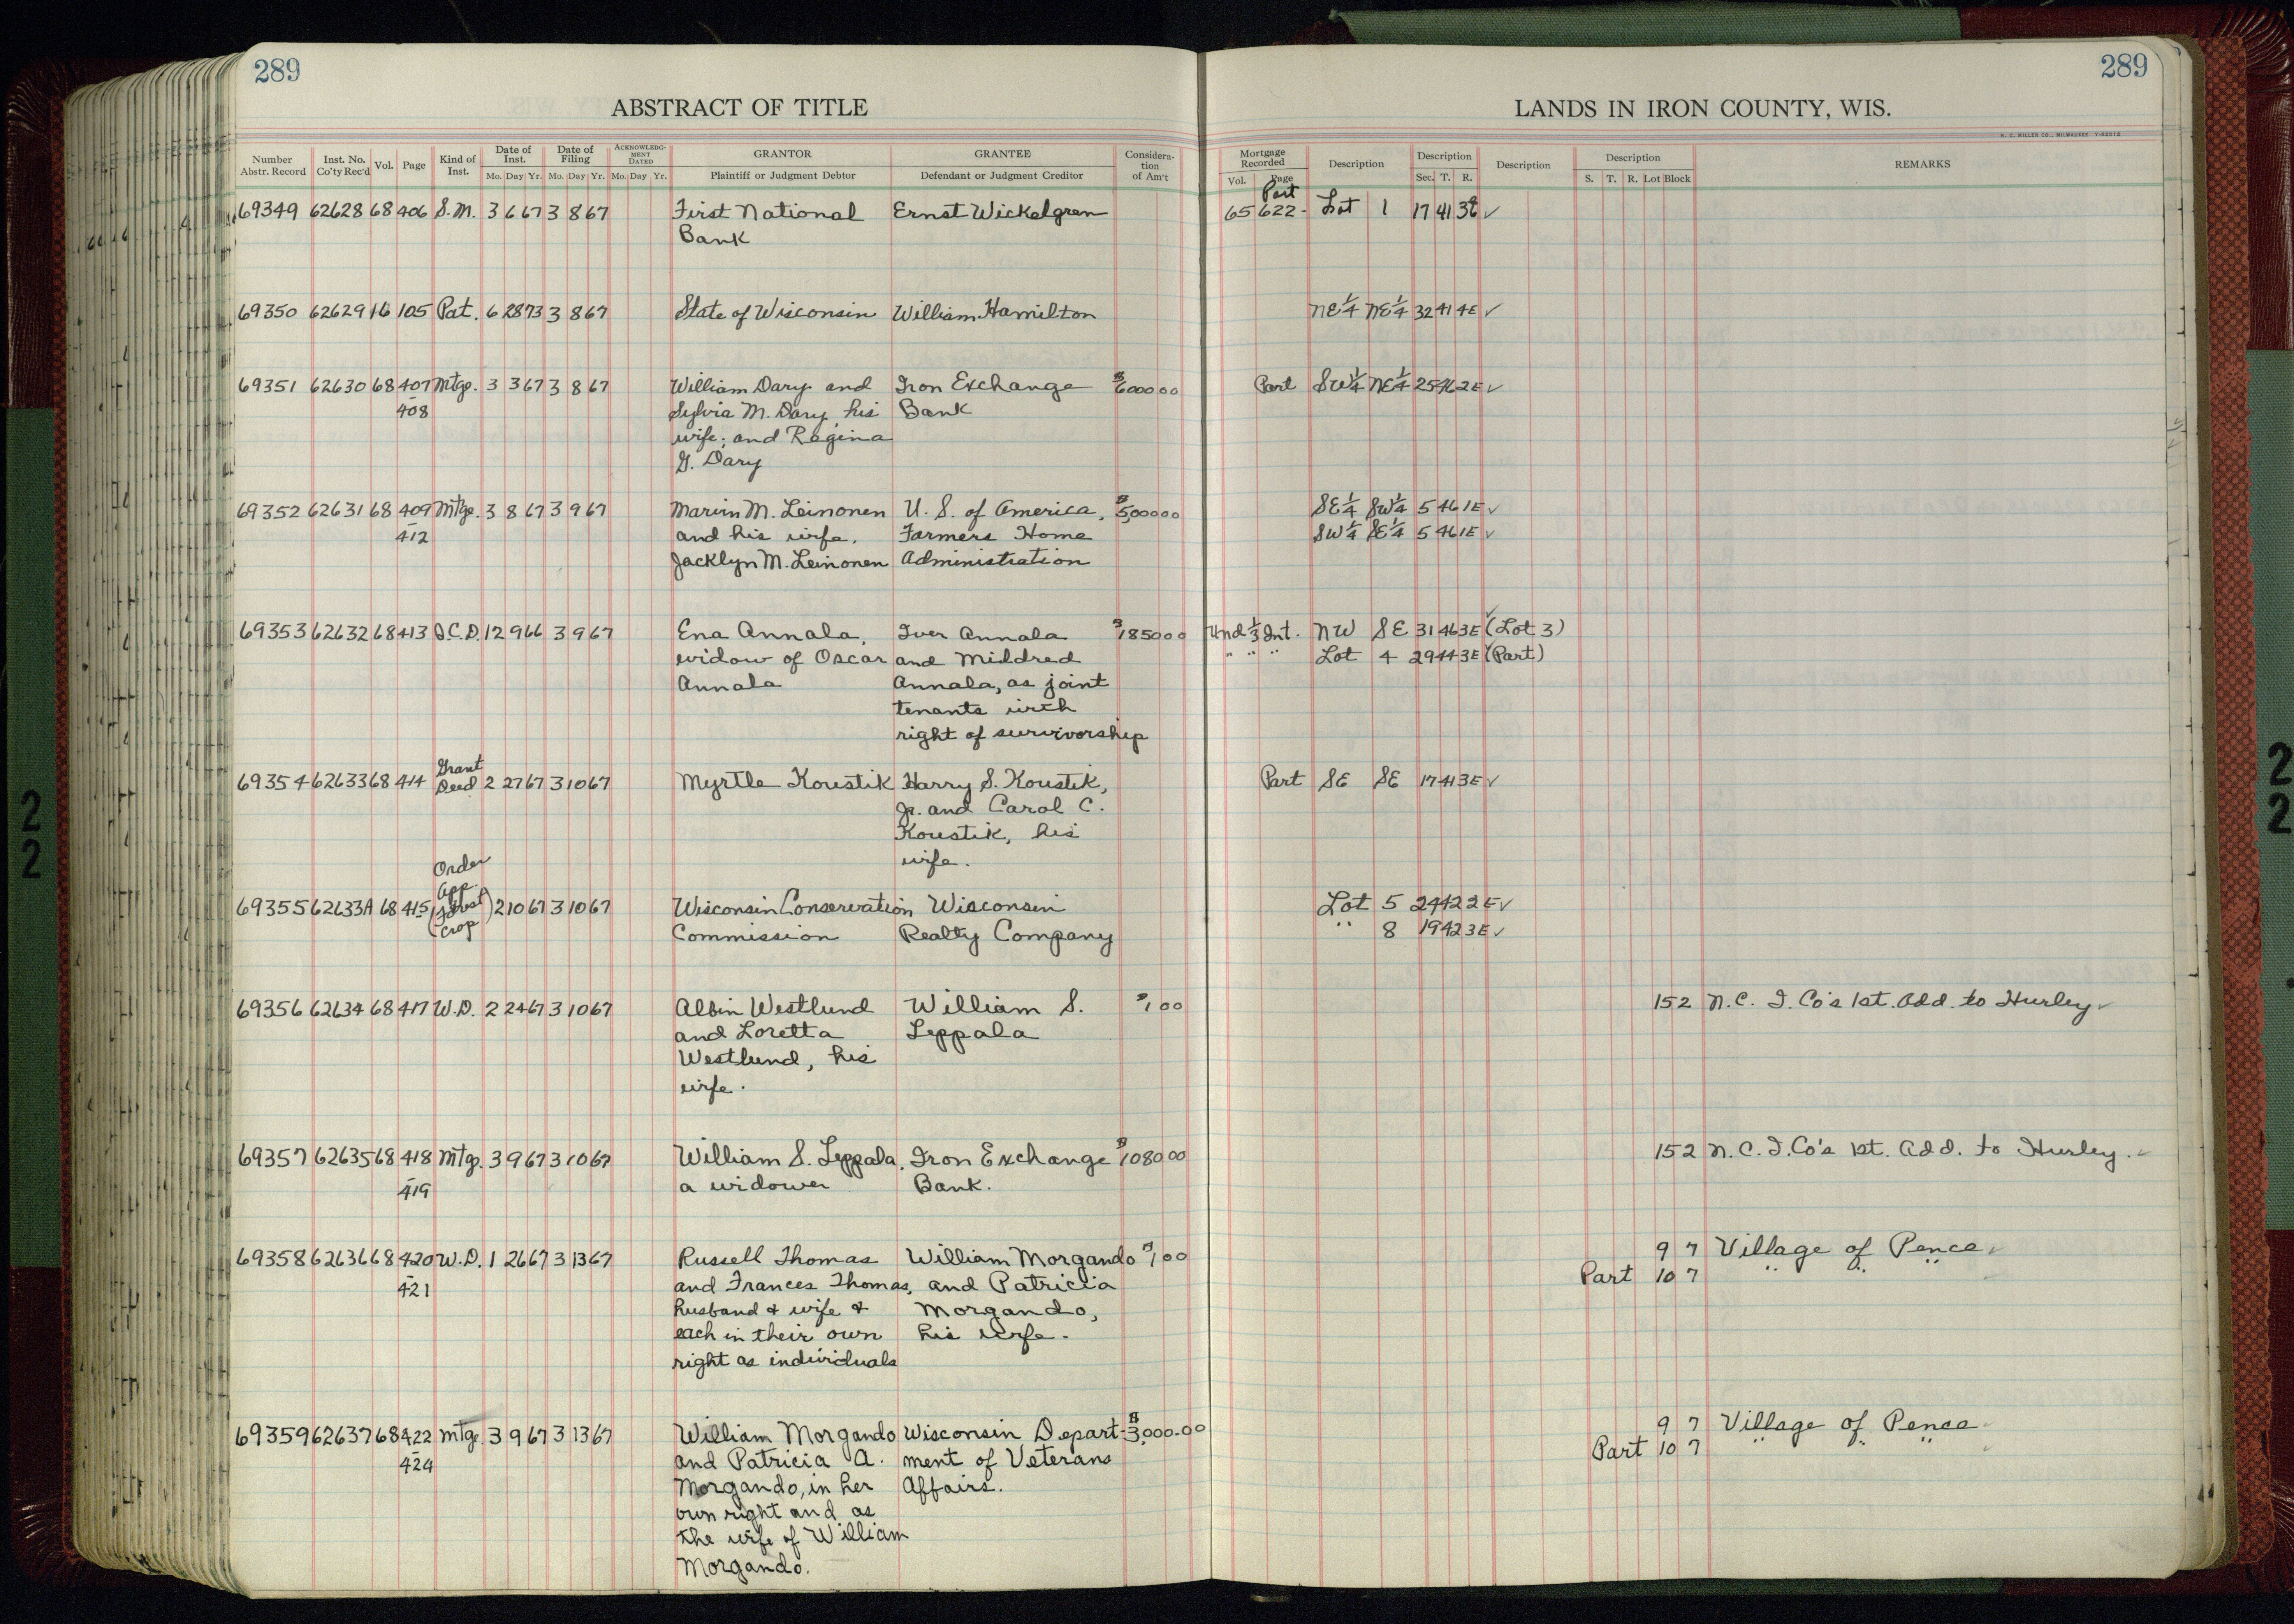 289
289
ABSTRACT OF TITLE
LANDS IN IRON COUNTY, WIS.
H. C. MILLER CO., MILWAUKEE
Number Abstr. Record Inst. No. Co'ty Rec'd Vol. Page Kind of Inst. Date of Inst. Mo. Day Yr. Date of Filing Mo. Day Yr. ACKNOWLEDGMENT DATED Mo. Day Yr. GRANTOR Plaintiff or Judgment Debtor GRANTEE Defendant or Judgment Creditor Consideration of Am't
Mortgage Recorded Vol. Page Description Description Sec. T. R. Description Description S. T. R. Lot Block REMARKS
Part
69349 62628 68 406 S.M. 3 6 67 3 8 67 First National Ernst Wickelgren 65 622- Lot 1 17 41 3E ✓
Bank
69350 62629 16 105 Pat. 6 28 73 3 8 67 State of Wisconsin William Hamilton NE¼ NE¼ 32 41 4E ✓
69351 62630 68 407 Mtge. 3 3 67 3 8 67 William Dary and Iron Exchange $6000 00 Part SW¼ NE¼ 25 46 2E ✓
- 408 Sylvia M. Dary, his Bank
wife; and Regina
G. Dary
69352 62631 68 409 Mtge. 3 8 67 3 9 67 Marvin M. Leinonen U. S. of America, $5,000 00 SE¼ SW¼ 5 46 1E ✓
- 412 and his wife, Farmers Home SW¼ SE¼ 5 46 1E ✓
Jacklyn M. Leinonen Administration
69353 62632 68 413 Q.C.D. 12 9 66 3 9 67 Ena Annala, Iver Annala $1850 00 Und ⅓ Int. NW SE 31 46 3E ✓ (Lot 3)
widow of Oscar and Mildred " " " Lot 4 29 44 3E ✓ (Part)
Annala Annala, as joint
tenants with
right of survivorship
Grant
69354 62633 68 414 Deed 2 27 67 3 10 67 Myrtle Koustik Harry S. Koustik, Part SE SE 17 41 3E ✓
Jr. and Carol C.
Koustik, his
wife.
Order
App.
69355 62633A 68 415 (Forest 2 10 67 3 10 67 Wisconsin Conservation Wisconsin Lot 5 24 42 2E ✓
Crop) Commission Realty Company " 8 19 42 3E ✓
69356 62634 68 417 W.D. 2 24 67 3 10 67 Albin Westlund William S. $1 00 15 2 N.C. I. Co's 1st. Add. to Hurley ✓
and Loretta Leppala
Westlund, his
wife.
69357 62635 68 418 Mtg. 3 9 67 3 10 67 William S. Leppala, Iron Exchange $1080 00 15 2 N.C. I. Co's 1st. Add. to Hurley. ✓
- 419 a widower Bank.
69358 62636 68 420 W.D. 1 26 67 3 13 67 Russell Thomas William Morgando $1 00 9 7 Village of Pence ✓
- 421 and Frances Thomas, and Patricia Part 10 7 " " "
husband & wife & Morgando,
each in their own his wife.
right as individuals
69359 62637 68 422 Mtge. 3 9 67 3 13 67 William Morgando Wisconsin Depart- $3,000.00 9 7 Village of Pence ✓
- 424 and Patricia A. ment of Veterans Part 10 7 " " " ✓
Morgando, in her Affairs.
own right and as
the wife of William
Morgando.
22
22